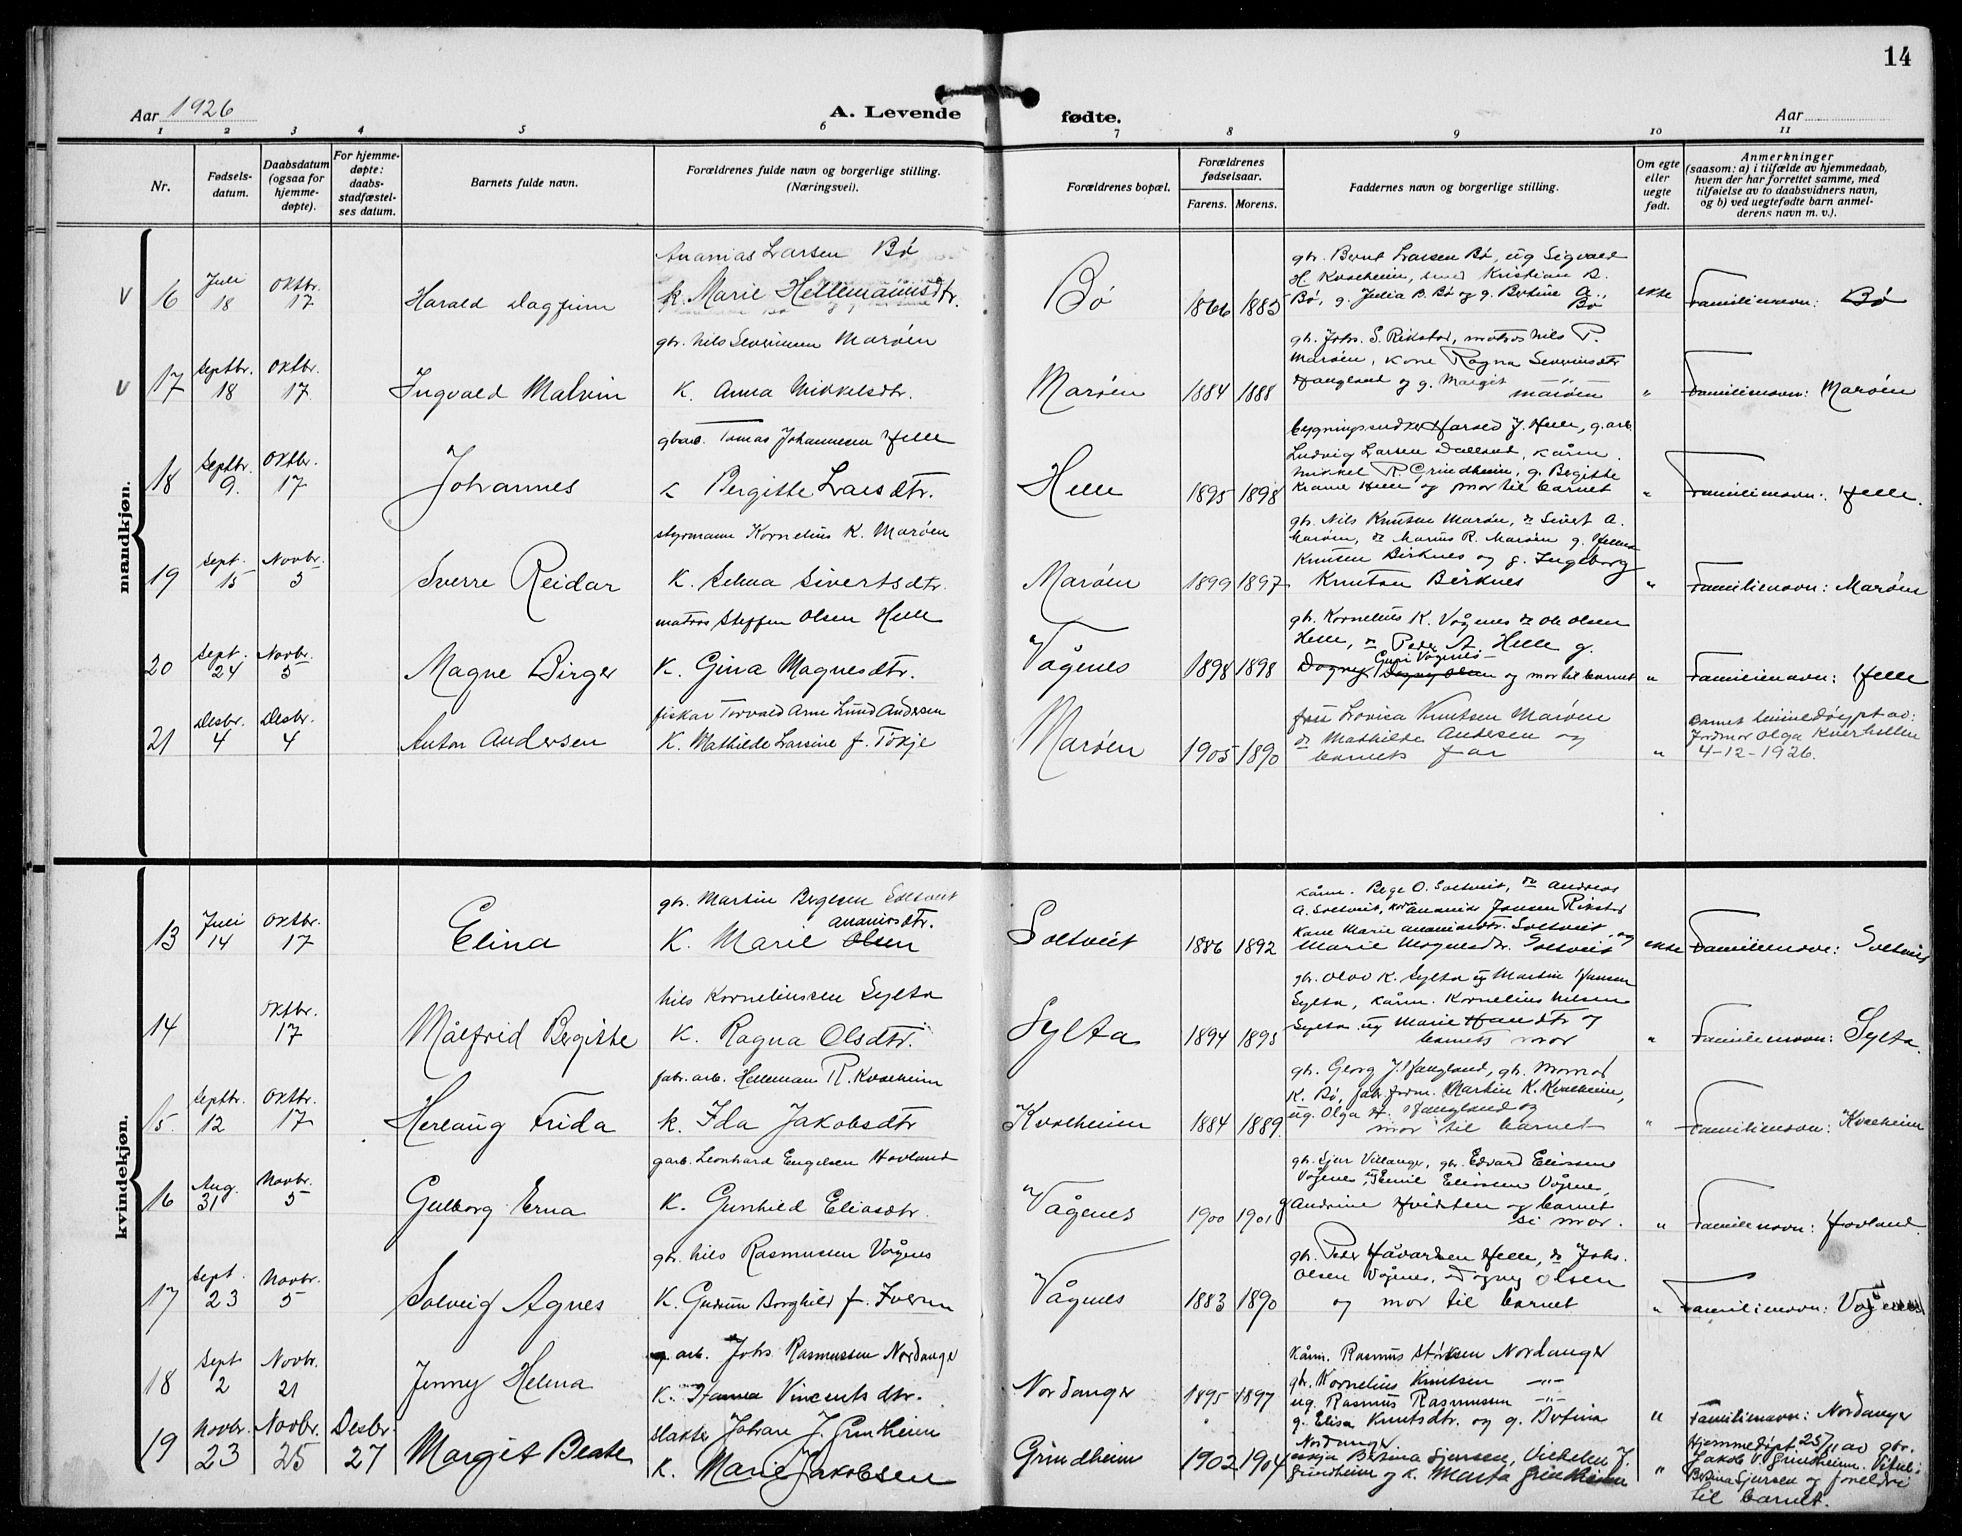 14
Aar 1926
A. Levende fødte.
Aar
1 2 3 4 5 6 7 8 9 10 11
Nr.
Fødsels-
datum.
Daabsdatum
(ogsaa for
hjemme-
døpte).
For hjemme-
døpte:
daabs-
stadfæstel-
ses datum.
Barnets fulde navn.
Forældrenes fulde navn og borgerlige stilling.
(Næringsvei).
Forældrenes bopæl.
Forældrenes
fødselsaar.
Farens. Morens.
Faddernes navn og borgerlige stilling.
Om egte
eller
uegte
født.
Anmerkninger
(saasom: a) i tilfælde av hjemmedaab,
hvem der har forrettet samme, med
tilføielse av to daabsvidners navn,
og b) ved uegtefødte barn anmel-
derens navn m. v.).
mandkjøn.
V 16 Juli 18 Oktbr. 17 Harald Dagfinn
Ananias Larsen Bø
k. Marie Hellemannsdtr.
Bø 1866 1883
gbr. Bernt Larsen Bø, ug Sigvald
H Kvalheim, Kristian B.
Bø, g. Julia B. Bø og g. Bertine A.
Bø
ekte Familienavn: Bø
V 17 Septbr. 18 Oktbr. 17 Ingvald Malvin
gbr. Nils Severinsen Marøen
K. Anna Mikkelsdtr.
Marøen 1884 1888
gbr. Johs. S. Rikstad, matros Nils P.
Marøen, kone Ragna Severinsdtr
Haugland og g. Margit Marøen
" Familienavn: Marøen
18 Septbr. 9. Oktbr. 17 Johannes
gbarb. Tomas Johannesen Helle
K Bergitte Larsdtr.
Helle 1895 1898
Harald J. Helle, g. arb.
Ludvig Larsen Dalland, kårm.
Mikkel R Grindheim, g. Bergitte
Helle og mor til barnet
" Familienavn: Helle.
19 Sept. 15 Novbr. 5 Sverre Reidar
styrmann Kornelius K. Marøen
K. Selma Sivertsdtr.
Marøen 1899 1897
gbr. Nils Knutsen Marøen, do Sivert A.
Marøen, do Marius R. Marøen g. Helena
Knutsen Birknes og g. Ingeborg
Knutsen Birknes
" Familienavn: Marøen
20 Sept. 24 Novbr. 5 Magne Birger
matros Steffen Olsen Helle
K. Gina Magnesdtr.
Vågenes 1898 1898
gbr. Kornelius K. Vågenes do Ole Olsen
Helle, do Peder A. Helle g.
Guri Vågenes
Dagny Dagny Olsen og mor til barnet
" Familienavn: Helle
21 Desbr. 4 Desbr. 4 Anton Andersen
fisker Torvald Arne Lund Andersen
K. Mathilde Larsine f. Tökje
Marøen 1905 1890
fru Lovica Knutsen Marøen
do Mathilde Andersen og
barnets far
" Barnet hjemmedøypt av:
Jordmor Olga Kverhellen
4-12-1926.
kvindekjøn.
13 Juli 14 Oktbr. 17 Elina
gbr. Martin Bergesen Soltveit
ananiasdtr.
K. Marie Olsen
Soltveit 1886 1892
kårm. Berge O. Soltveit, do Andreas
A. Soltveit, Ananias Jansen Rikstad
Kone Marie Ananiasdtr. Soltveit, og
Marie Mognesdtr. Soltveit
ekte Familienavn: Soltveit
14 Oktbr. 17 Målfrid Bergitte
Nils Korneliussen Sylta
K. Ragna Olsdtr.
Sylta 1894 1895
gbr. Olav K. Sylta og Martin Hansen
Sylta, kårm. Kornelius Nilsen
Sylta ug Marie Hansdtr og
barnets mor
" Familienavn: Sylta.
15 Septbr. 12 Oktbr. 17 Herlaug Frida
fabr. arb. Helleman R. Kvalheim
K. Ida Jakobsdtr
Kvalheim 1884 1889.
gbr. Georg J. Haugland, gbr. Monrad
K. Bø, fabr. form. Martin K. Kvalheim,
ug. Olga H. Haugland og
mor til barnet
" Familienavn: Kvalheim
16 Aug. 31 Novbr. 5 Gulborg Erna
garb. Leonhard Engelsen Hovland
K. Gunhild Eliasdtr.
Vågenes 1900 1901
gbr. Sjur Villanger, gbr. Edvard Eliassen
Vågenes, Emil Eliassen Vågenes,
g Andrine Hvidsten og barnet
si mor.
" Familienavn: Hovland.
17 Sept. 23 Novbr. 5 Solveig Agnes
gbr. Nils Rasmussen Vågenes
K. Gudrun Borghild f. Iversen
Vågnes 1883 1890
gbr. Peder Håvardsen Helle, do Johs.
Olsen Vågenes, Dagny Olsen
og mor til barnet
" Familienavn: Vågenes
18 Sept 2 Novbr. 21 Jenny Helena
g. arb. Johs Rasmussen Nordanger
K. Hanna Vincentsdtr.
Nordanger 1895 1897
kårm. Rasmus Størksen Nordanger
gbr. Kornelius Knutsen -"-
ug. Rasmus Rasmussen -"-
g. Elisa Knutsdtr. og g. Bertina
Nordanger
" Familienavn: Nordanger
19 Novbr. 23 Novbr. 25 Desbr. 27 Margit Beate
slakter Johan J. Grindheim
K. Marie Jakobsen
Grindheim 1902 1904
Bertina Sjursen, Vilhelm J.
Grindheim og K. Marta Grindheim
" Hjemmedøpt 25/11 av gbr.
Jakob V. Grindheim. Vitul:
Bertina Sjursen og foreldre
til barnet.